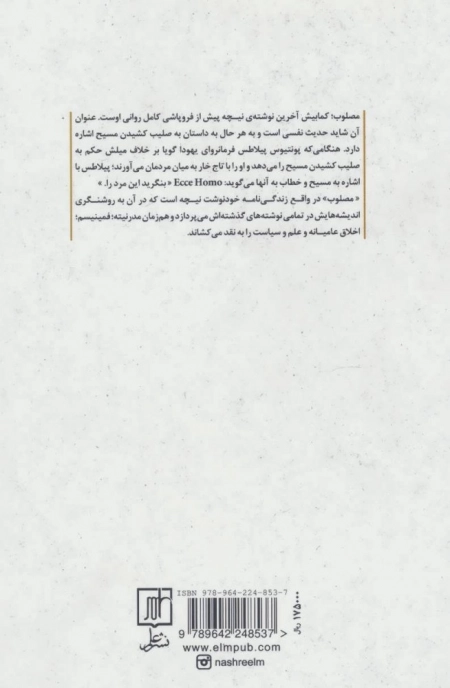 مصلوب؛ کمابیش آخرین نوشته‌ی نیچه پیش از فروپاشی کامل روانی اوست. عنوان
آن شاید حدیث نفسی است و به هر حال به داستان به صلیب کشیدن مسیح اشاره
دارد. هنگامی‌که پونتیوس پیلاطس فرمانروای یهودا گویا بر خلاف میلش حکم به
صلیب کشیدن مسیح را می‌دهد و او را با تاج خار به میان مردمان می‌آورند؛ پیلاطس با
اشاره به مسیح و خطاب به آنها می‌گوید: Ecce Homo « بنگرید این مرد را. »
« مصلوب» در واقع زندگی‌نامه خودنوشت نیچه است که در آن به روشنگری
اندیشه‌هایش در تمامی نوشته‌های گذشته‌اش می‌پردازد و هم‌زمان مدرنیته؛ فمینیسم؛
اخلاق عامیانه و علم و سیاست را به نقد می‌کشاند.
ISBN 978-964-224-853-7
9 789642 248537 >
۱۷۵۰۰۰ ریال
نشر علم
www.elmpub.com
nashreelm